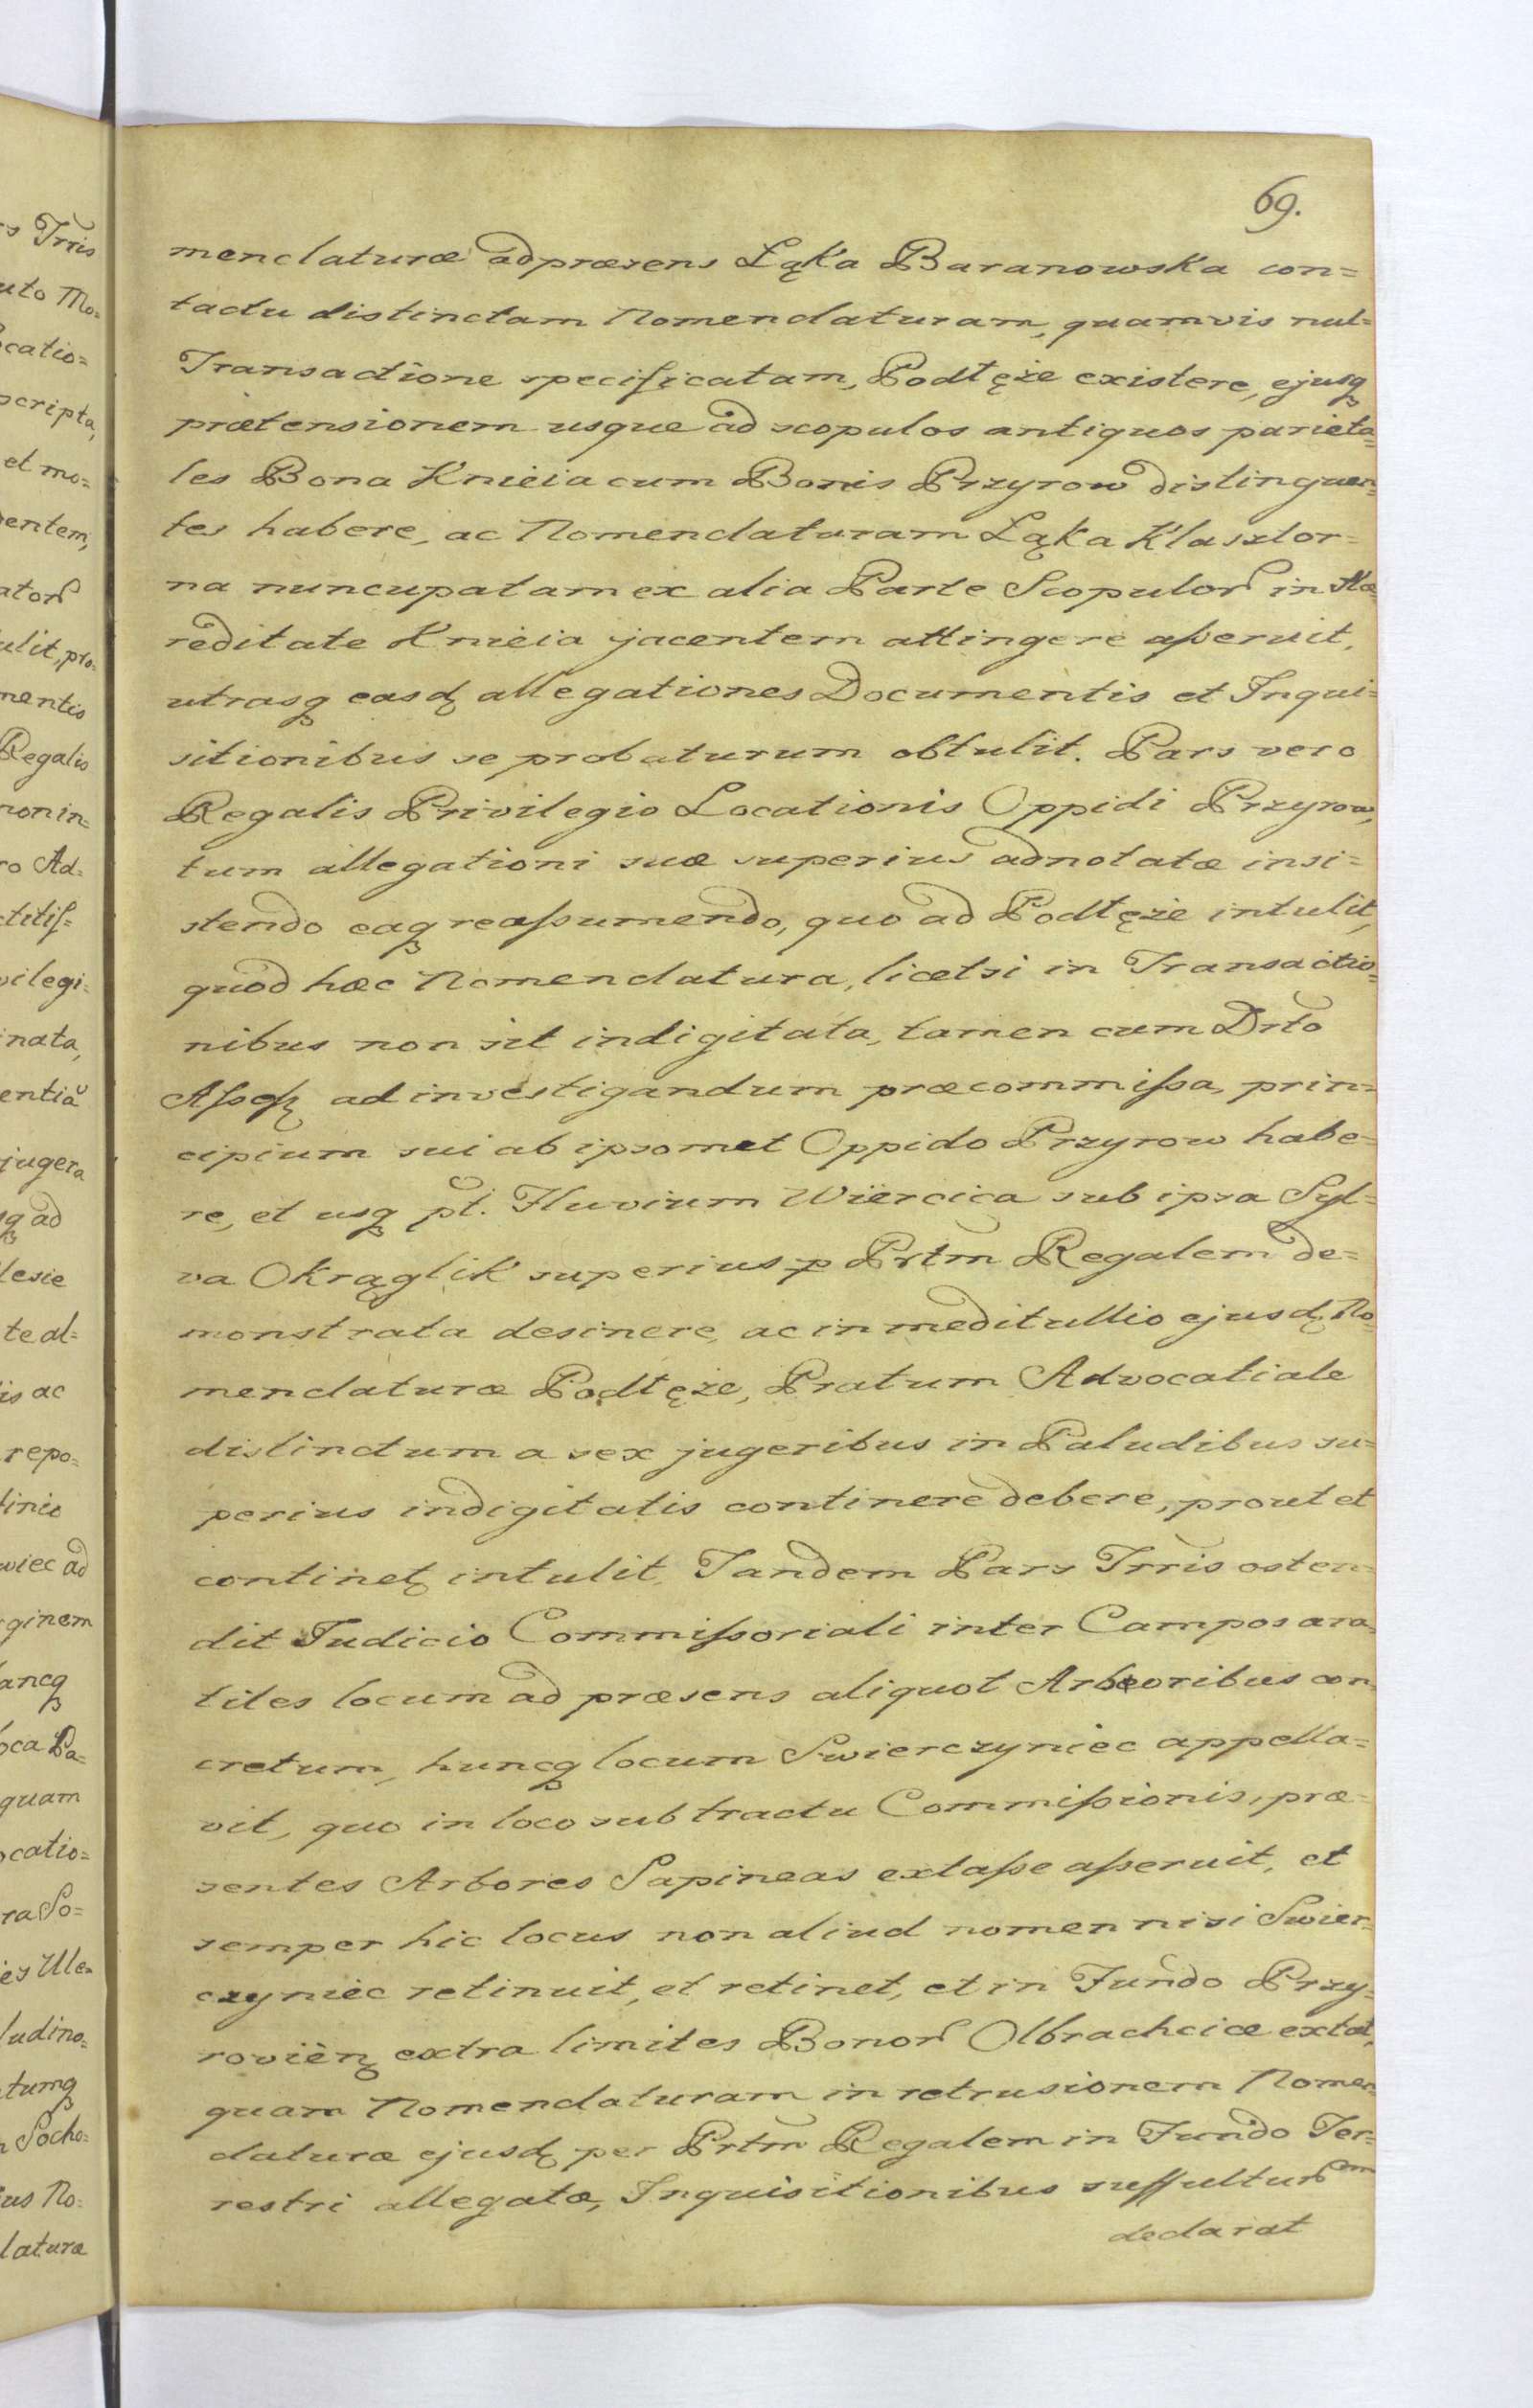 69.
menclaturæ ad præsens Łąka Baranowska con=
tactu distinctam Nomenclaturam, quamvis nul=
Transactione specificatam, Podłęże existere, ejusq
prætensionem usque ad scopulos antiquos parieta=
les Bona Knieia cum Bonis Przyrow distinguen=
tes habere, ac Nomenclaturam Łąka Klasztor=
na nuncupatam ex alia Parte Scopulor in Hæ
reditate Knieia jacentem attingere aſseruit,
utrasq easd allegationes Documentis et Inqui=
sitionibus se probaturum obtulit. Pars vero
Regalis Privilegio Locationis Oppidi Przyrow,
tum allegationi suæ superius adnotatæ insi=
stendo eaq reaſsumendo, quo ad Podłęże intulit,
quod hæc Nomenclatura, licetsi in Transactio=
nibus non sit indigitata, tamen cum Drto
Aſseſs ad investigandum præcommiſsa, prin=
cipium sui ab ipsomet Oppido Przyrow habe=
re, et usq pt. Fluvium Wiercica sub ipsa Syl=
va Okrąglik superius p Prtm Regalem de=
monstrata desinere, ac in meditullio ejusd No=
menclaturæ Podłęże, Pratum Advocatiale
distinctum a sex jugeribus in Paludibus su=
perius indigitatis continere debere, prout et
continet intulit. Tandem Pars Trris osten=
dit Judicio Commiſsoriali inter Campos ara=
tiles locum ad præsens aliquot Arboribus con
cretum, huncq locum Swierczyniec appella=
vit, quo in loco sub tractu Commiſsionis, præ=
sentes Arbores Sapineas extaſse aſseruit, et
semper hic locus non aliud nomen nisi Swier=
czyniec retinuit, et retinet, et in Fundo Przy=
rovien extra limites Bonor Olbrachcice extat,
quam Nomenclaturam in retrusionem Nomen
claturæ ejusd per Prtm Regalem in Fundo Ter=
restri allegatæ, Inquisitionibus suffultur
declarat